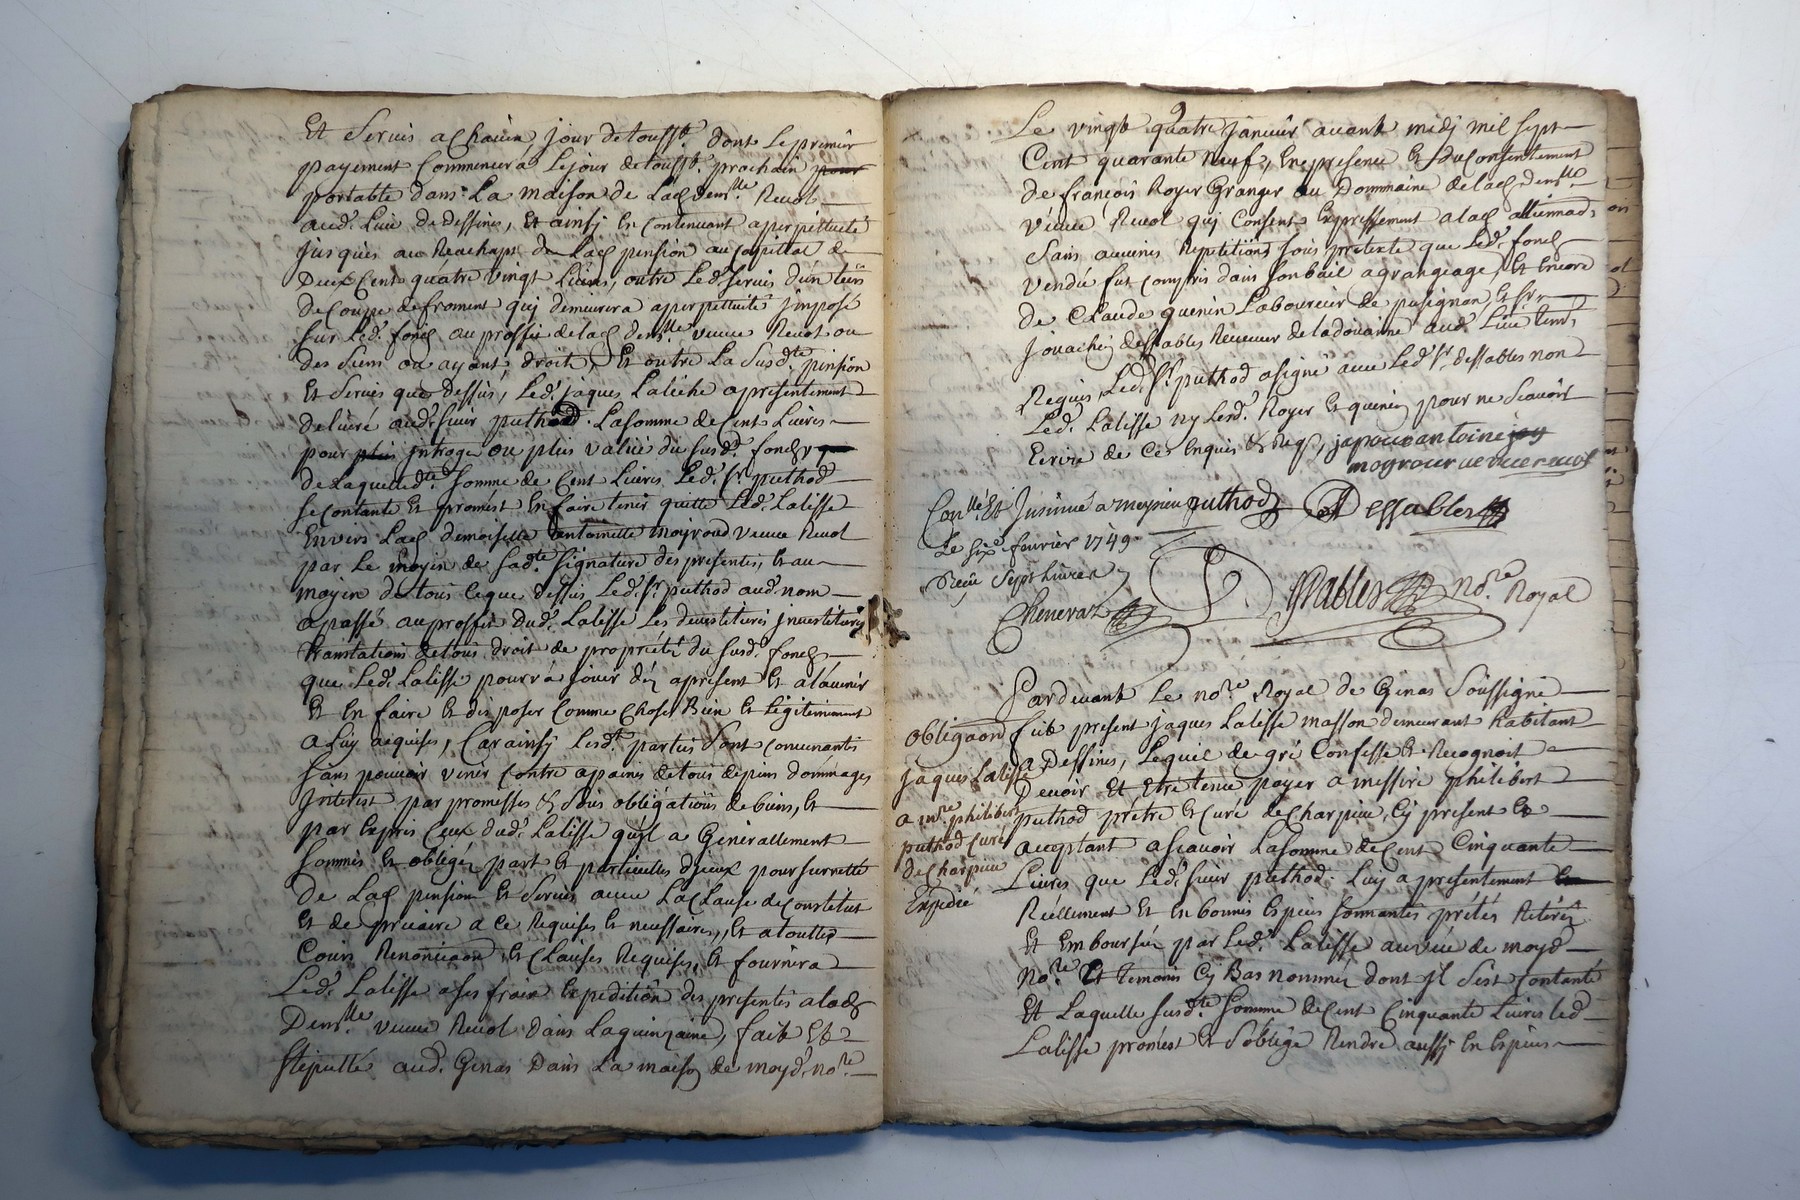 Et Servis achacun jour detousst. dont Lepremier
payement Commencera Lejour detousst. prochain pour
portable dans La maison de Lad demlle. Revol
aud. Lieu de dessines, Et ainsy En Continuant aperpettuité
jusques au Reachapt de Lad pension au Capittal de
Deux Cents quatre vingt Livres, outre Led. servis d'un tiers
de Coupe defroment quy demeurera aperpettuité jmposé
sur Led. fond au proffit delad demlle. veuve Revol ou
des Siens ou ayant droit, Et outre La Susdte. pension
Et Servis que Dessus, Led. jaques Latisse apresentement
delivré aud. sieur puthod. Lasomme deCent Livres
pour plus jntroge ou plus vallue du susd. fond
de Laquelle dte. somme de Cent Livres Led. Sr. puthod
se Contante Et promest En faire tenir quitte Led. Latisse
Envers Lad demoiselle antoinette moyroud veuve Revol
par Le moyen de sadte. signature des presentes, Et au
moyen detout Ceque dessus Led. Sr. puthod aud. nom
apassé auproffit dud. Latisse Les devestitures jnvestitures
translations detous droit de proprieté du susd. fond
que Led. Latisse pourra jouir dez apresent Et alavenir
Et En faire Et disposer Comme Choses Bien Et Légitimement
a Luy acquises, Car ainsy Lesdt. parties sont Convenantes
sans pouvoir venir Contre apaines detous depens dommages
jnterest par promesses & sous obligations debiens, Et
par Exprès Ceux dud. Latisse qu'il a Genérallement
soumis Et obligés part Et particulles d'jceux pour surretté
De Lad pension Et Servis avec La Clause de Constitut
Et de precaire a Ce Requises Et necessaires, Et atouttes
Cours Renonciaon Et Clauses Requises, Et fournira
Led. Latisse ases frais Expedition des presentes alad
Demlle. veuve Revol dans Laquinzaine, fait Et
stipullé aud. Genas Dans La maison de moyd. nore.
Le vingt quatre janvier avant midy mil sept
Cent quarante neuf, En presence Et du Consentement
de françois Royer Granger au Dommaine delad demlle
veuve Revol quy Consent Expressement alad alliennaon
sans aucunes Repetitions sous pretexte que Led. fond
vendu fut Compris dans sonbail agrangeage, Et Encore
de Claude quenin Laboureur de pusignan, Et sr
jouachin dessables Receveur deladouanne aud. Lieu tems.
Requis, Led. Sr. puthod asigné avec Led Sr. dessables non
Led. Latisse ny Lesd. Royer Et quenin pour ne sçavoir
Ecrire de Ce Enquis & Reqs, japrouve antoinette
moyroud veuve revol
Conllé. Et Jnsinué a meysieu puthod Dessables
Le six février 1749.
Reçu Sept Livres
Cheneraz Dessables nore. Royal
Pardevant Le nore. Royal de Genas Soussigné
obligaon fut present jaques Latisse masson demeurant habitant
a Dessines, Lequel de gré Confesse Et Recognoit
jaques Latisse Devoir Et Etre tenu payer a messire philibert
a mre. philibert puthod prétre Et Curé deCharpieu, Cy present Et
puthod Curé acceptant asçavoir Lasomme deCent Cinquante
de Charpieu Livres que Led. sieur puthod. Luy apresentement
Expedié Réellement Et En bonnes Especes sonnantes prétés Retirés
Et Emboursés par Led. Latisse au vue de moyd
nore. Et Temoins Cy Bas nommés dont jl s'est Contanté
Et Laquelle susdte. somme de Cent Cinquante Livres Led
Latisse promest Et s'oblige Rendre aussy En Especes